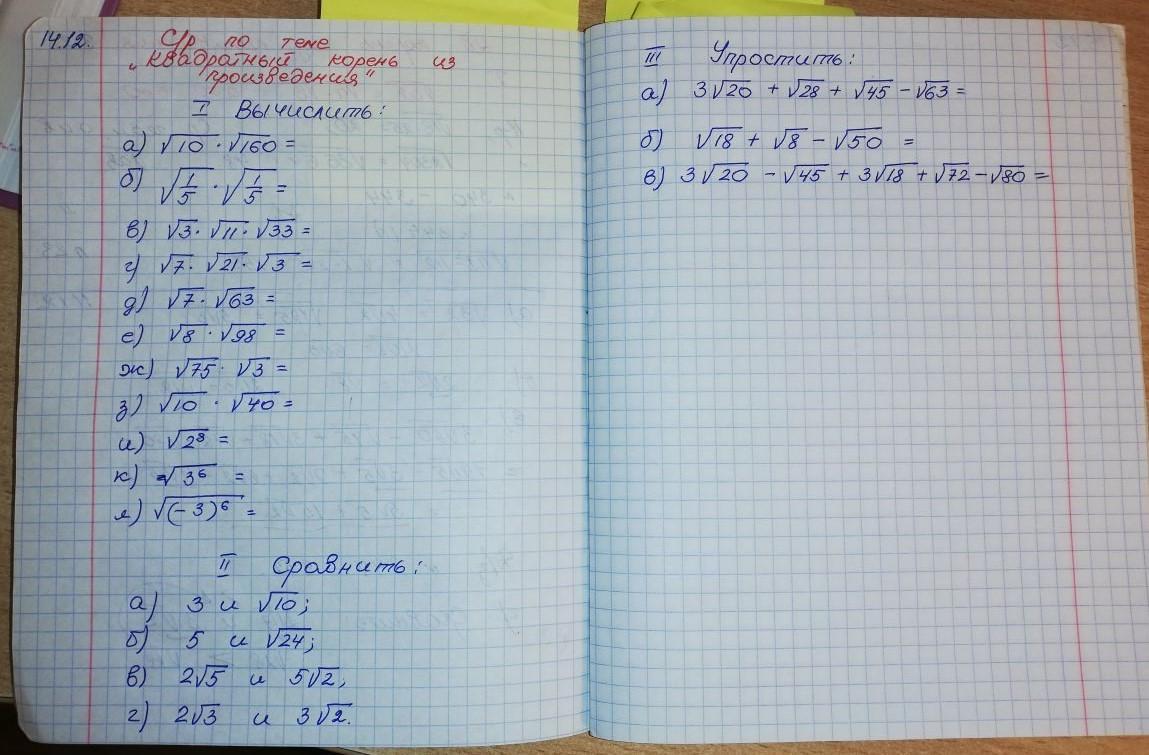 14.12.
С/р по теме
„Квадратный корень из
произведения"
I Вычислить:
а) √10 · √160 =
б) √1/5 · √1/5 =
в) √3 · √11 · √33 =
г) √7 · √21 · √3 =
д) √7 · √63 =
е) √8 · √98 =
ж) √75 · √3 =
з) √10 · √40 =
и) √2⁸ =
к) √3⁶ =
л) √(-3)⁶ =
II Сравнить:
а) 3 и √10;
б) 5 и √24;
в) 2√5 и 5√2,
г) 2√3 и 3√2.
III Упростить:
а) 3√20 + √28 + √45 - √63 =
б) √18 + √8 - √50 =
в) 3√20 - √45 + 3√18 + √72 - √80 =